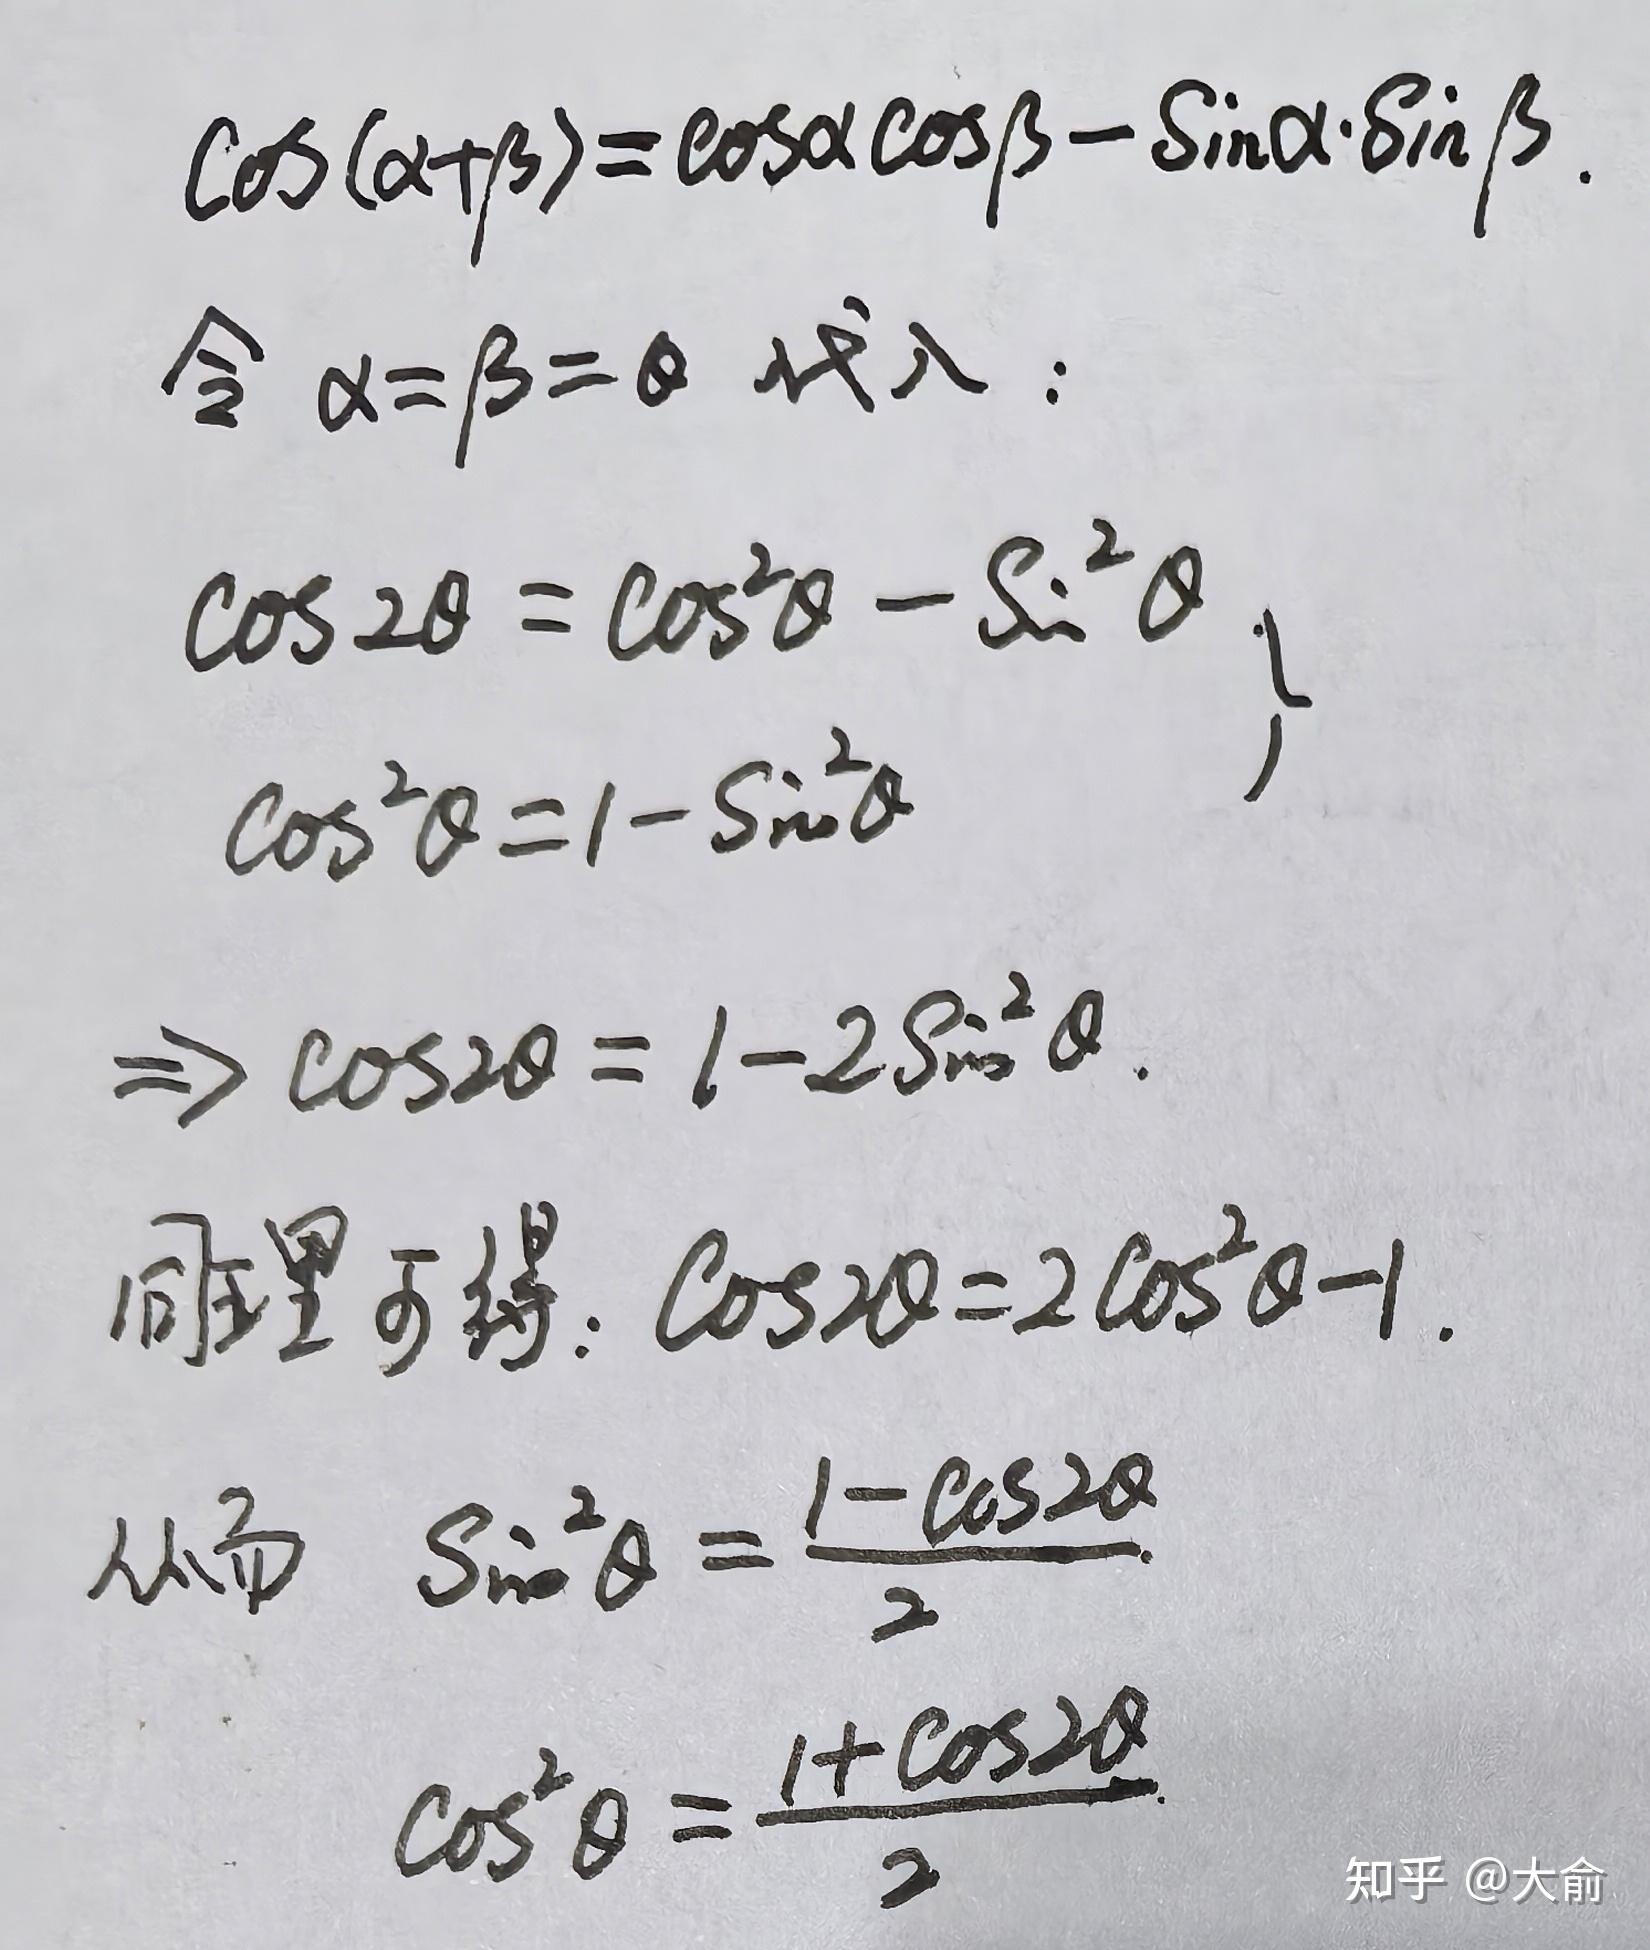 cos(α+β)=cosαcosβ-sinα·sinβ.
令 α=β=θ 代入:
cos2θ=cos²θ-sin²θ
cos²θ=1-sin²θ
⇒cos2θ=1-2sin²θ.
同理可得:cos2θ=2cos²θ-1.
从而 sin²θ=\frac{1-cos2θ}{2}.
cos²θ=\frac{1+cos2θ}{2}.
知乎 @大俞